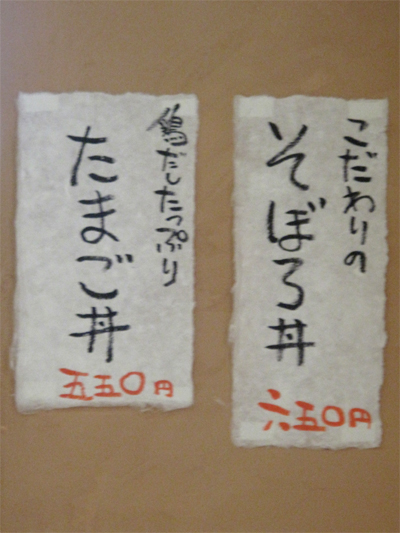 こだわりの
そぼろ丼
六五〇円
鶏だしたっぷり
たまご丼
五五〇円